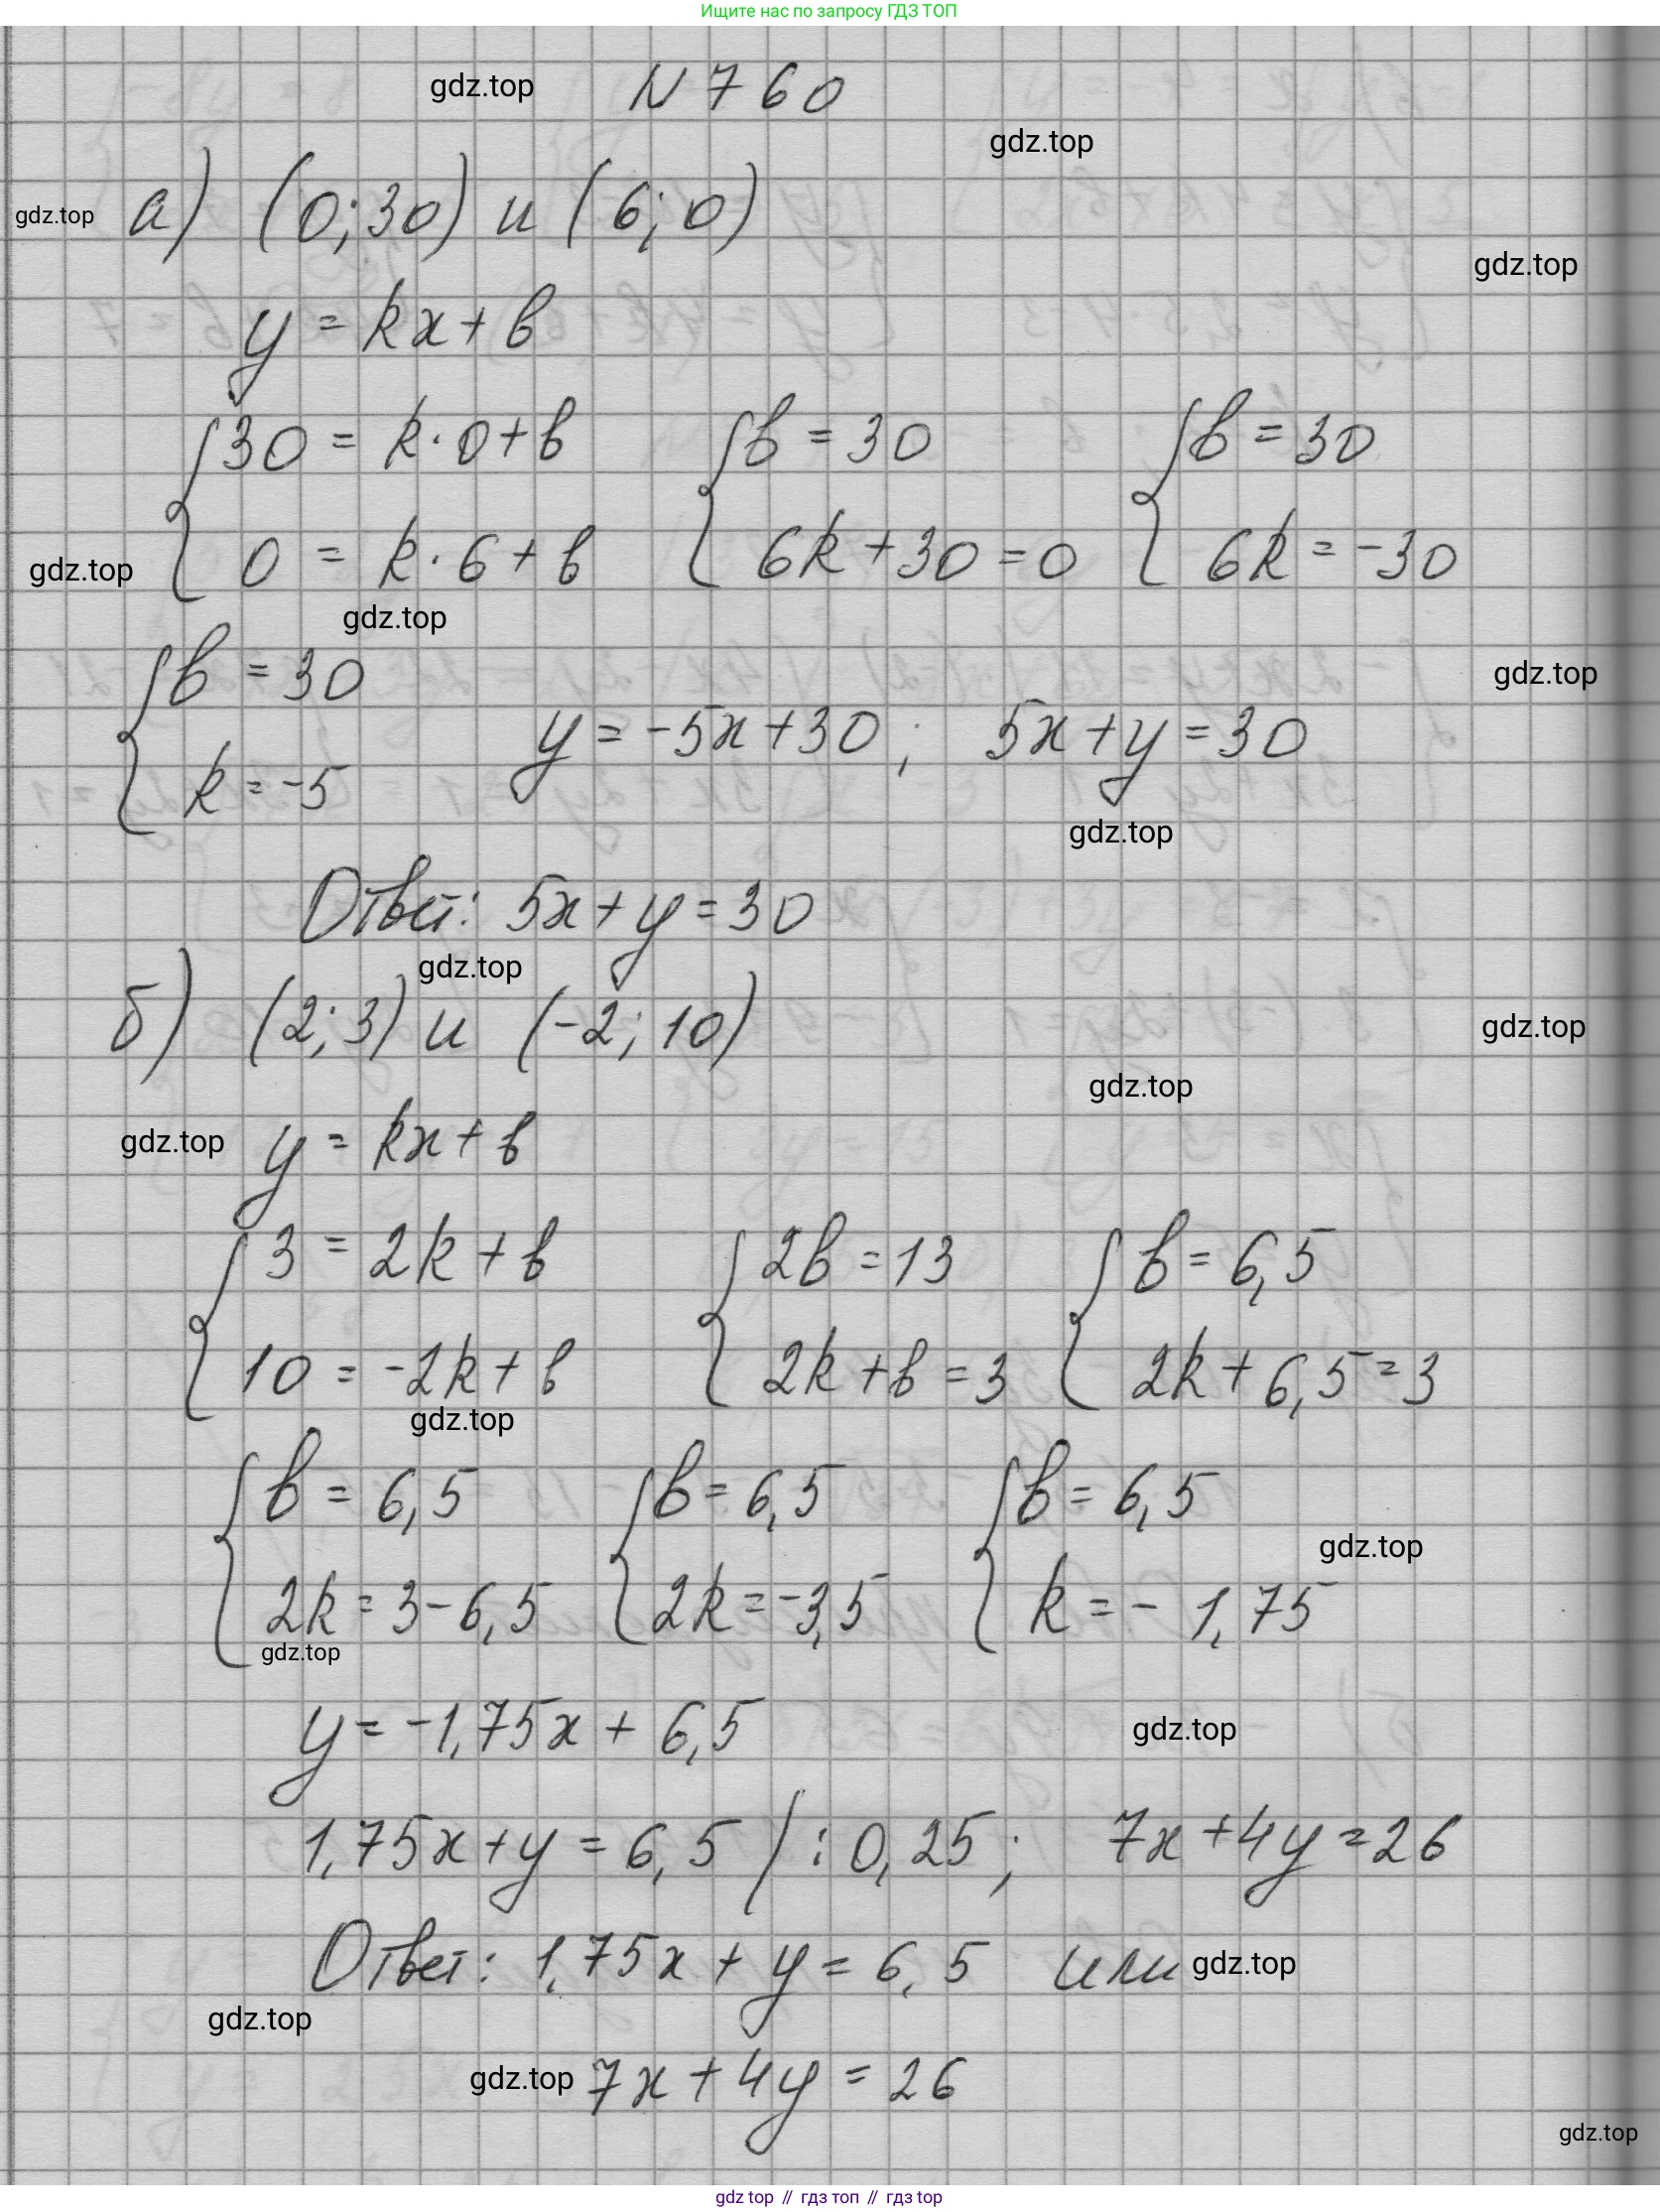 Ищите нас по запросу ГДЗ ТОП
gdz.top N 760
gdz.top
gdz.top а) (0; 30) и (6; 0)
gdz.top
y = kx + b
{ 30 = k·0 + b { b = 30 { b = 30
0 = k·6 + b 6k + 30 = 0 6k = -30
gdz.top
gdz.top
{ b = 30
gdz.top
k = -5 y = -5x + 30; 5x + y = 30
gdz.top
Ответ: 5x + y = 30
gdz.top
б) (2; 3) и (-2; 10)
gdz.top
gdz.top
gdz.top y = kx + b
{ 3 = 2k + b { 2b = 13 { b = 6,5
10 = -2k + b 2k + b = 3 2k + 6,5 = 3
gdz.top
{ b = 6,5 { b = 6,5 { b = 6,5
gdz.top
2k = 3 - 6,5 2k = -3,5 k = - 1,75
gdz.top
y = -1,75x + 6,5
gdz.top
1,75x + y = 6,5 / : 0,25; 7x + 4y = 26
Ответ: 1,75x + y = 6,5 или gdz.top
gdz.top
gdz.top 7x + 4y = 26
gdz.top
gdz top // гдз топ // gdz top